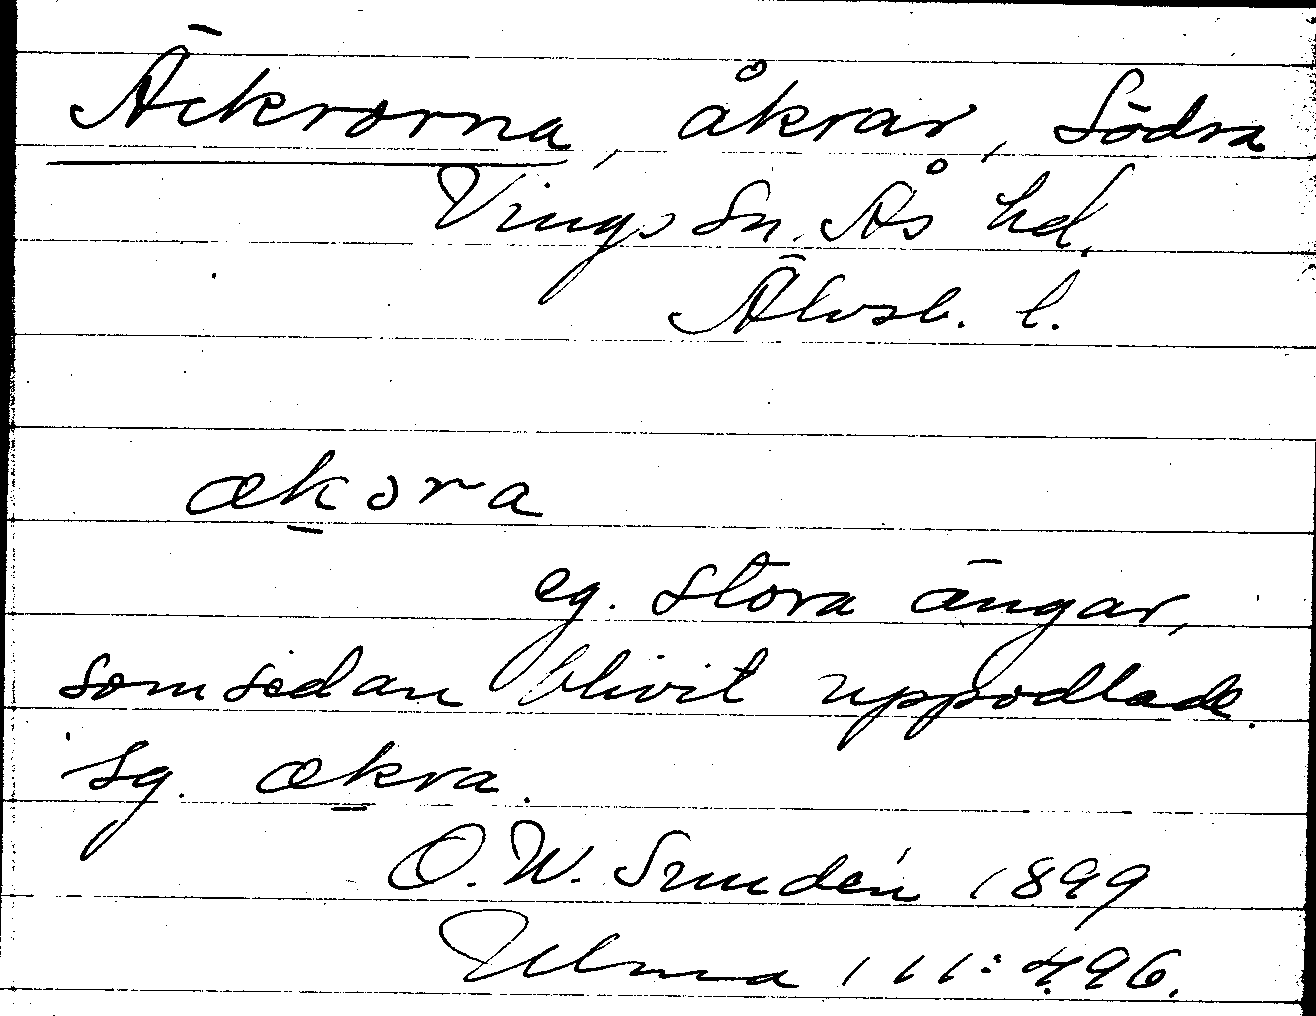 Äckrorna, åkrar, Södra
Vings sn, Ås hd,
Älvsb. l.
ækora
eg. stora ängar,
som sedan blivit uppodlade.
Sg. ækra.
O. W. Sundén 1899
Ulma 111:496.